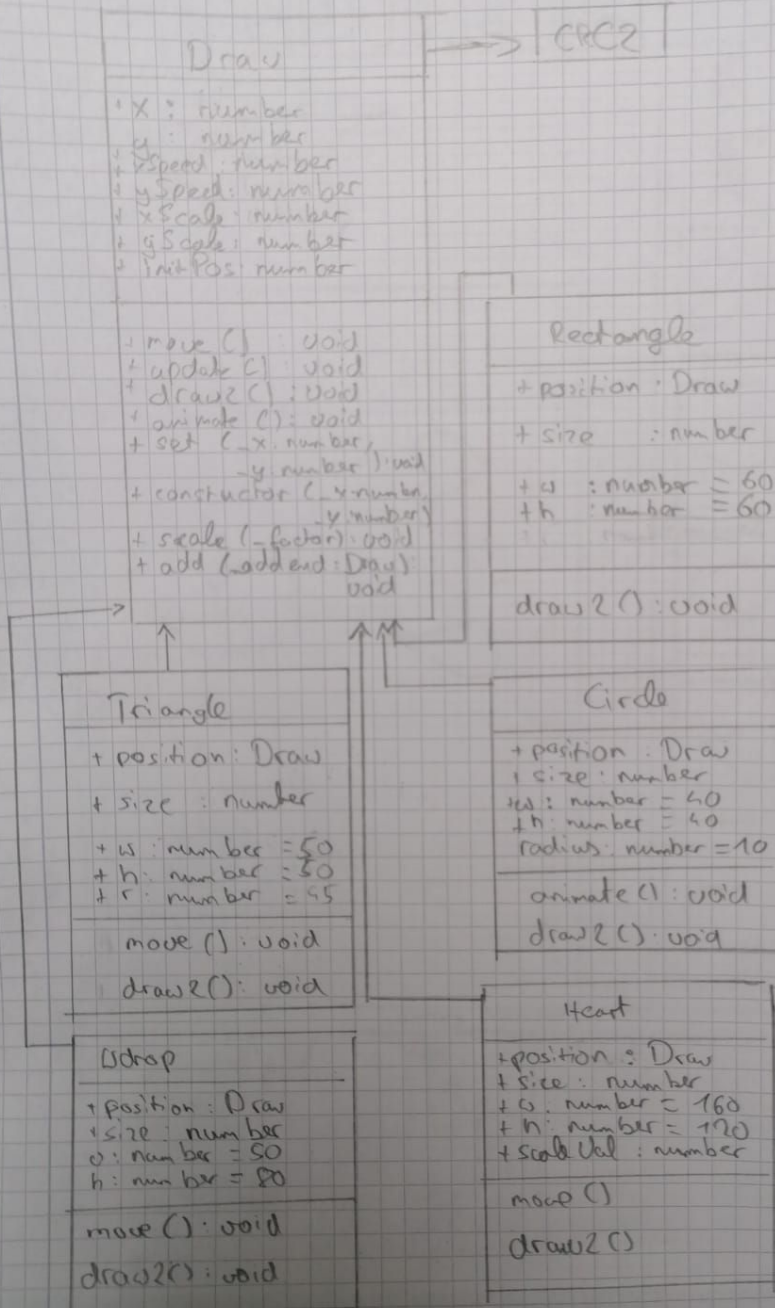 Draw
CRC2
+ x : number
y : number
+ xSpeed : number
+ ySpeed : number
+ xScale : number
+ yScale : number
+ initPos : number
+ move () : void
+ update () : void
+ draw2 () : void
+ animate () : void
+ set (_x : number,
_y : number) : void
+ constructor (_x : numbn
_y number)
+ scale (_factor) : void
+ add (_addend : Draw)
void
Rectangle
+ position : Draw
+ size : number
+ w : number = 60
+ h : number = 60
draw2 () : void
Triangle
+ position : Draw
+ size : number
+ w : number = 50
+ h : number = 50
+ r : number = 45
move () : void
draw2 () : void
Circle
+ position : Draw
+ size : number
+ w : number = 40
+ h : number = 40
radius : number = 10
animate () : void
draw2 () : void
drop
+ position : Draw
+ size : number
: number = 50
h : number = 80
move () : void
draw2 () : void
Heart
+ position : Draw
+ size : number
+ w : number = 160
+ h : number = 120
+ scale Val : number
move ()
draw2 ()